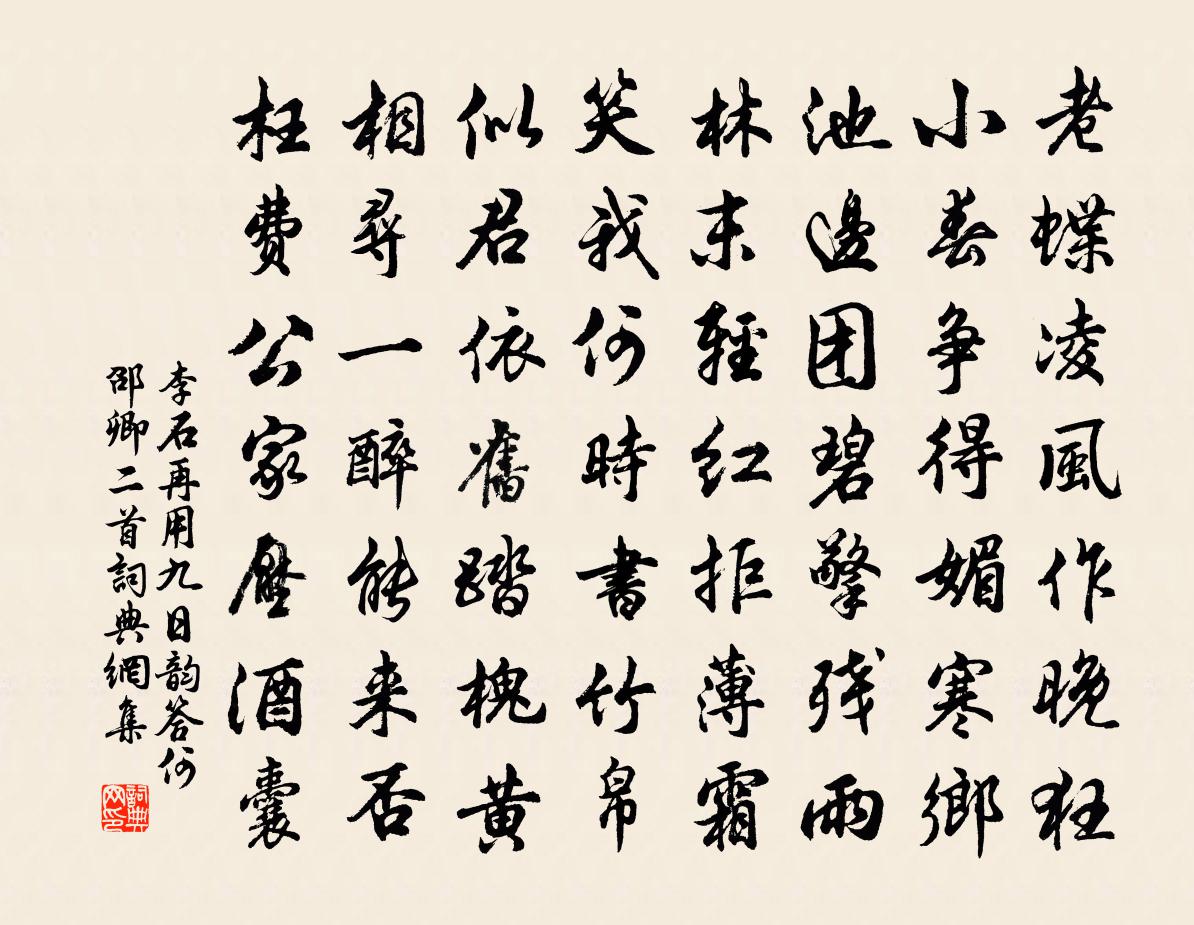 老蝶凌風作晚狂
小春争得媚寒鄉
池邊团碧擎殘雨
林末輕紅拒薄霜
笑我何時書竹帛
似君依舊踏槐黄
相尋一醉能来否
枉費公家壓酒囊
李石再用九日韵答何
邵卿二首詞典網集
詞典网印